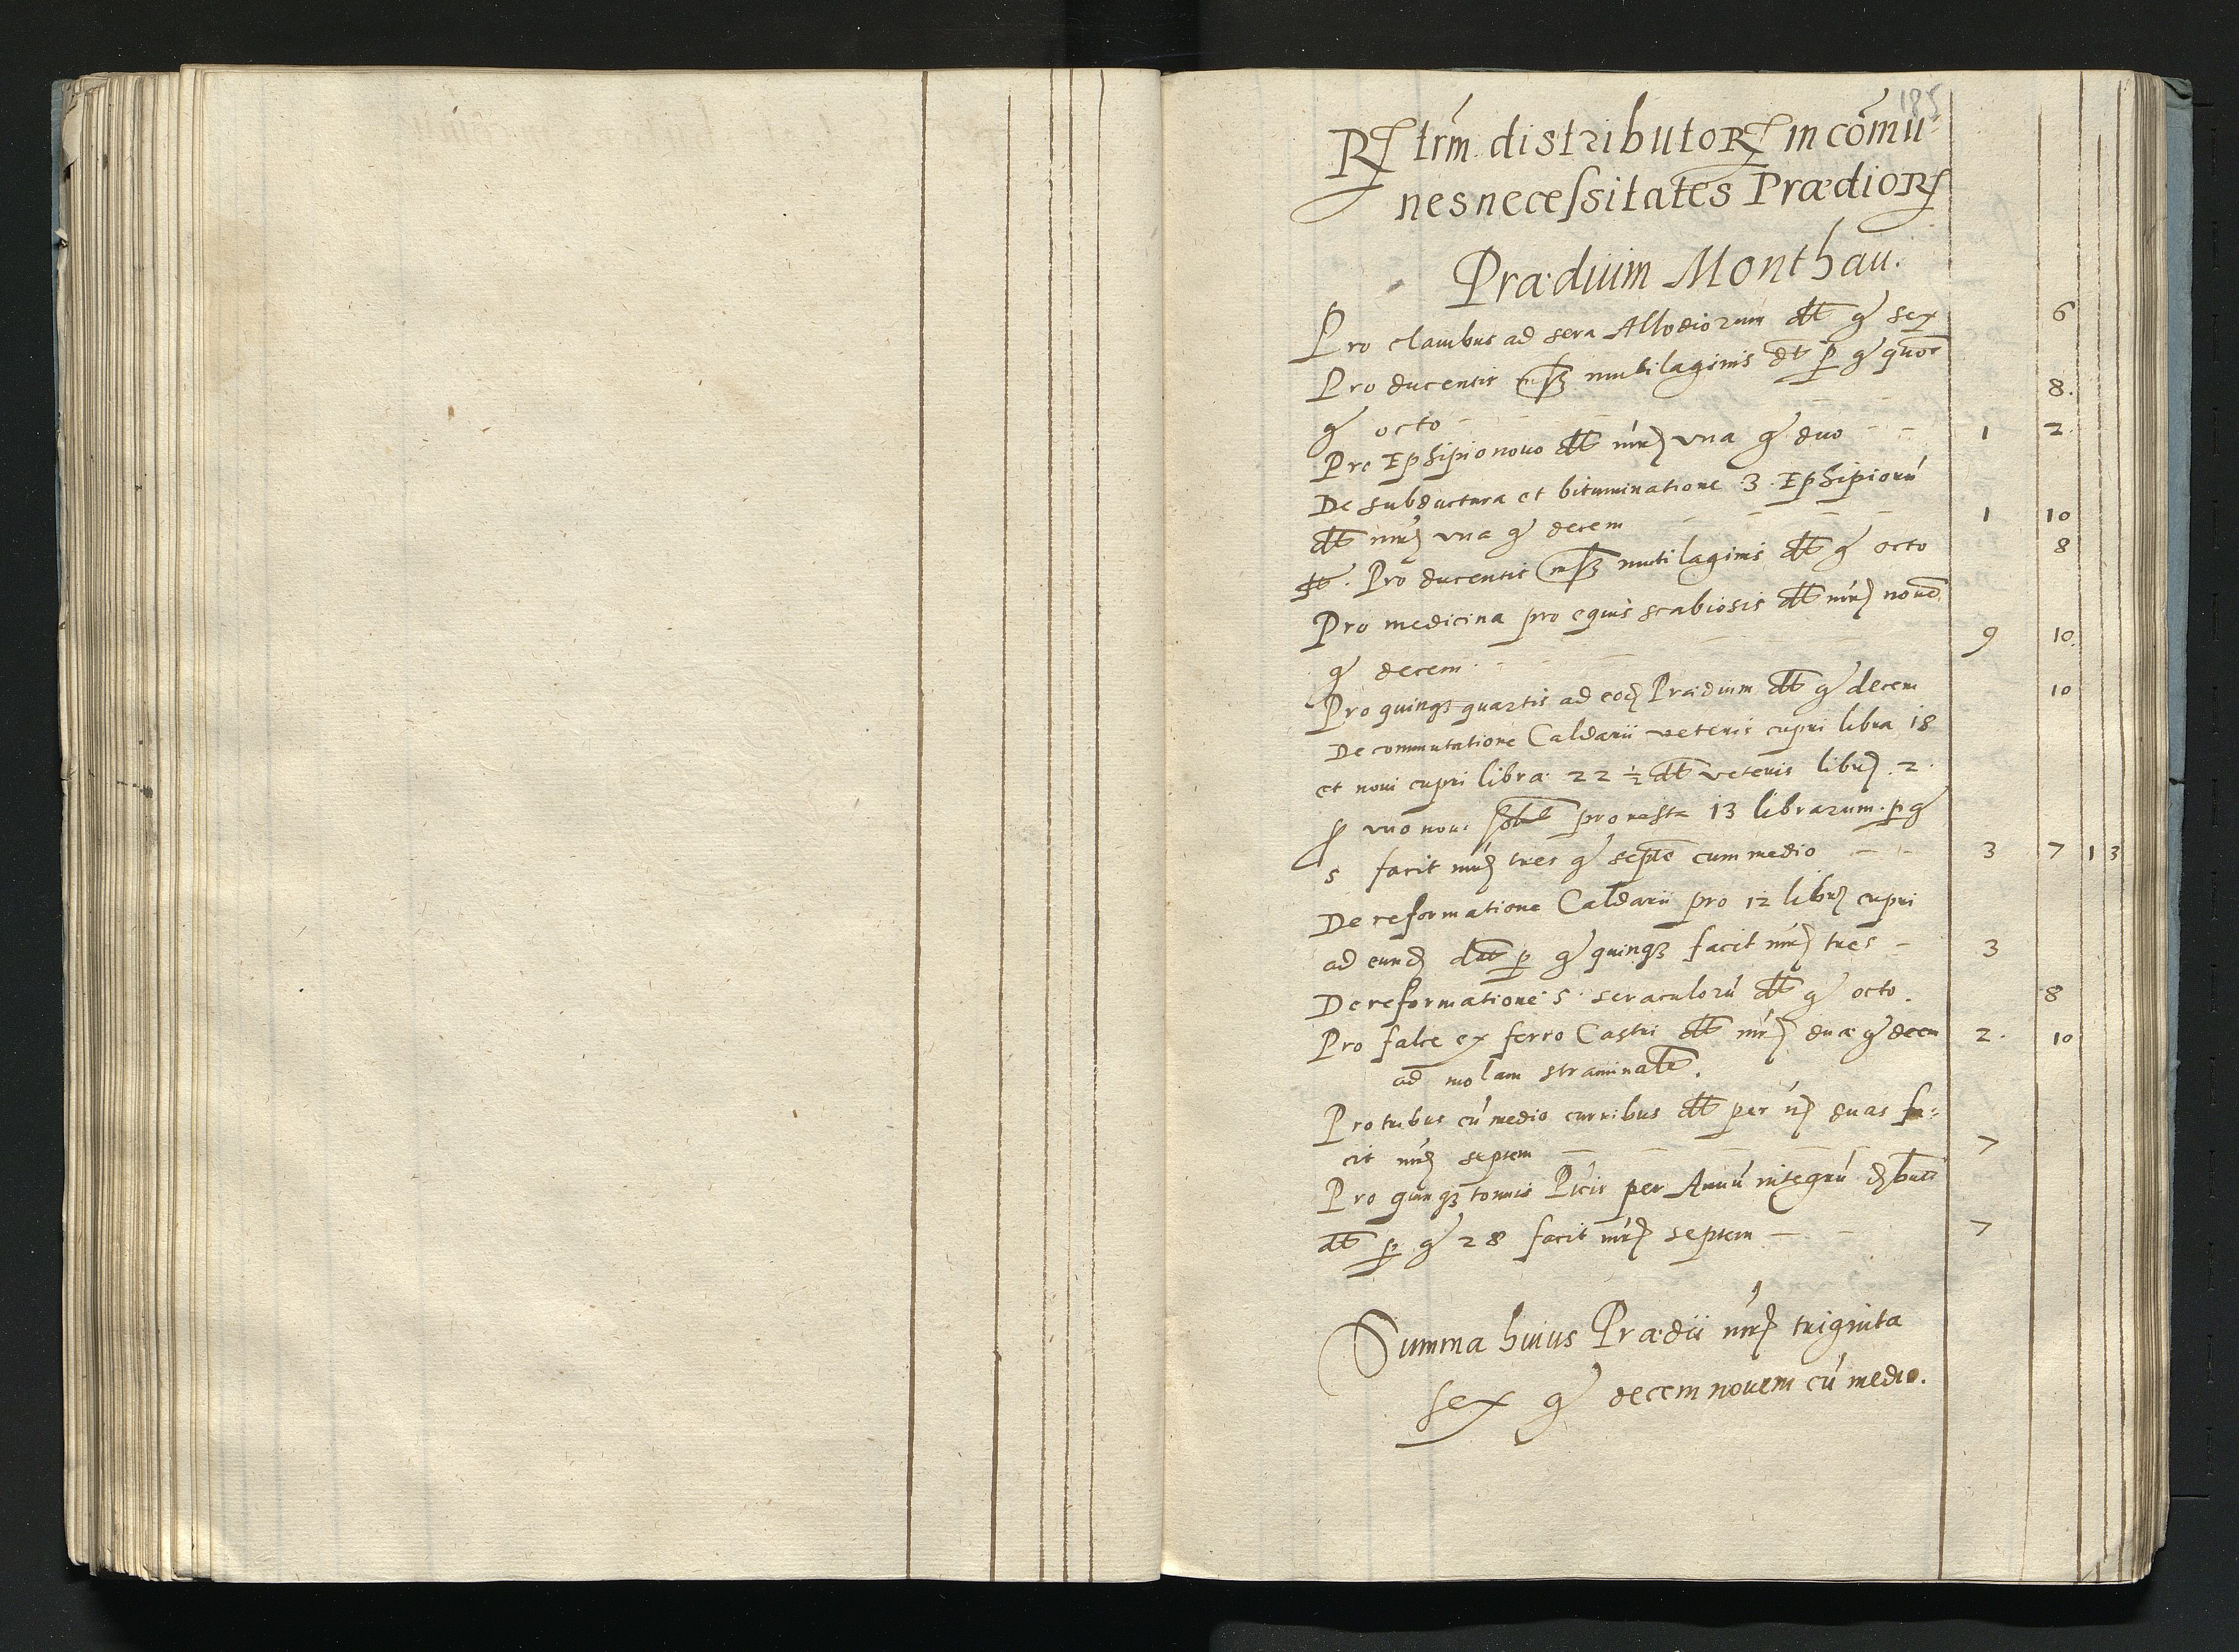 185
Rtrm distributoR in comu
nes necessitates PrædioR
Prædium Monthau.
Pro clauibus ad sera Allodiorum dt g sex 6
Pro ducentis mutilagines dt p g quor
g octo - 8.
Pro Ephipio nouo dt mr vna g duo - - 1 2
De subductura et bituminatione 3. Ephipiorú
dt mr vna g decem - 1 10
Pro ducentis mutilaginis dt g octo 8
Pro medicina pro equis scabiosis dt mr noue
g decem. 9 10.
Pro quinq quartis ad eod Prædium dt g decem 10
De commutatione Caldarii veteris cupri libra 18
et noui cupri libra 22 ½ dt veteris libr. 2.
p vno noui pro resta 13 librarum. p g
5 facit mr tres g septe cum medio - - 3 7 1 3
De reformatione Caldarii pro 12 libr cupri
ad eund dat p g quinq facit mr tres - 3
De reformatione 5 seraculorú dt g octo. 8
Pro falce ex ferro Castri dt mr duæ g decem 2. 10
ad molam straminale.
Pro tribus cú medio curribus dt per mr duas fa:
cit mr septem - 7
Pro quinq tonnis Picis per Annú integrú
dt p g 28 facit mr septem - - 7
Summa huius Prædii mr triginta
sex g decem nouem cú medio.